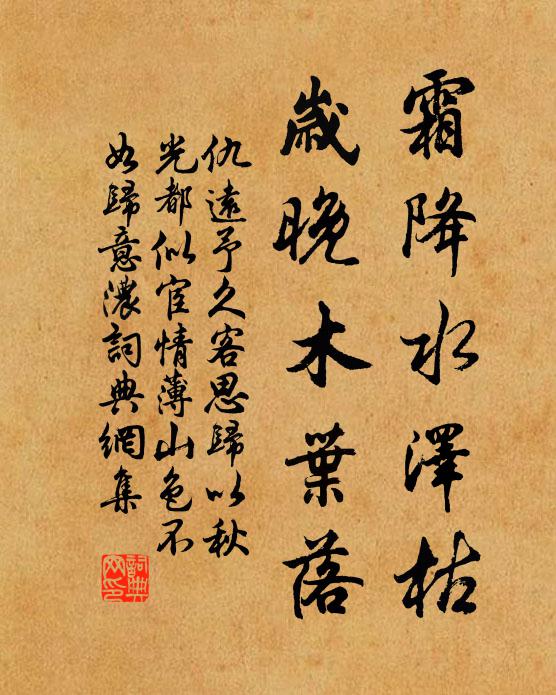 霜降水澤枯
歲晚木葉落
仇遠予久客思歸以秋
光都似宦情薄山色不
如歸意濃詞典網集
詞典
网印